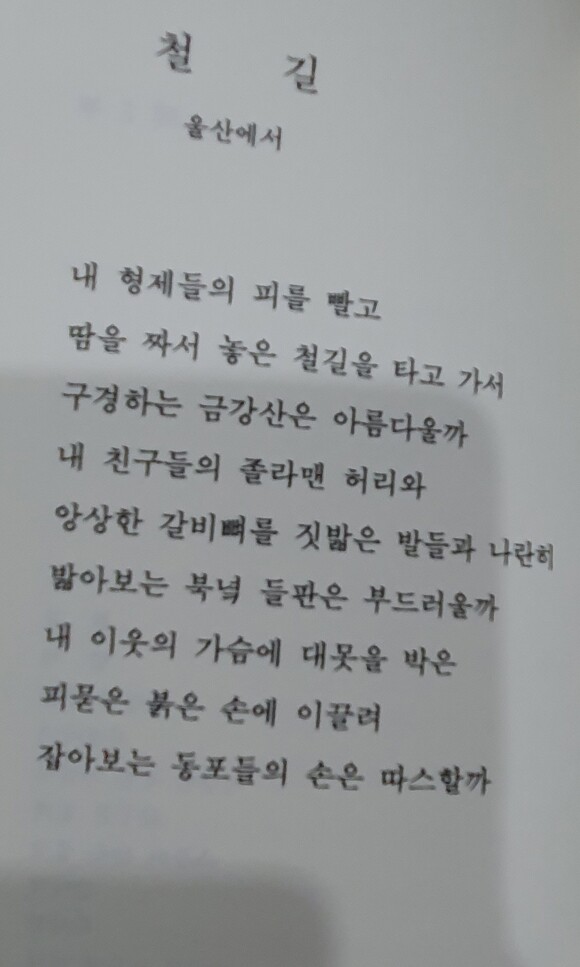 철 길
울산에서
내 형제들의 피를 빨고
땀을 짜서 놓은 철길을 타고 가서
구경하는 금강산은 아름다울까
내 친구들의 졸라맨 허리와
앙상한 갈비뼈를 짓밟은 발들과 나란히
밟아보는 북녘 들판은 부드러울까
내 이웃의 가슴에 대못을 박은
피묻은 붉은 손에 이끌려
잡아보는 동포들의 손은 따스할까